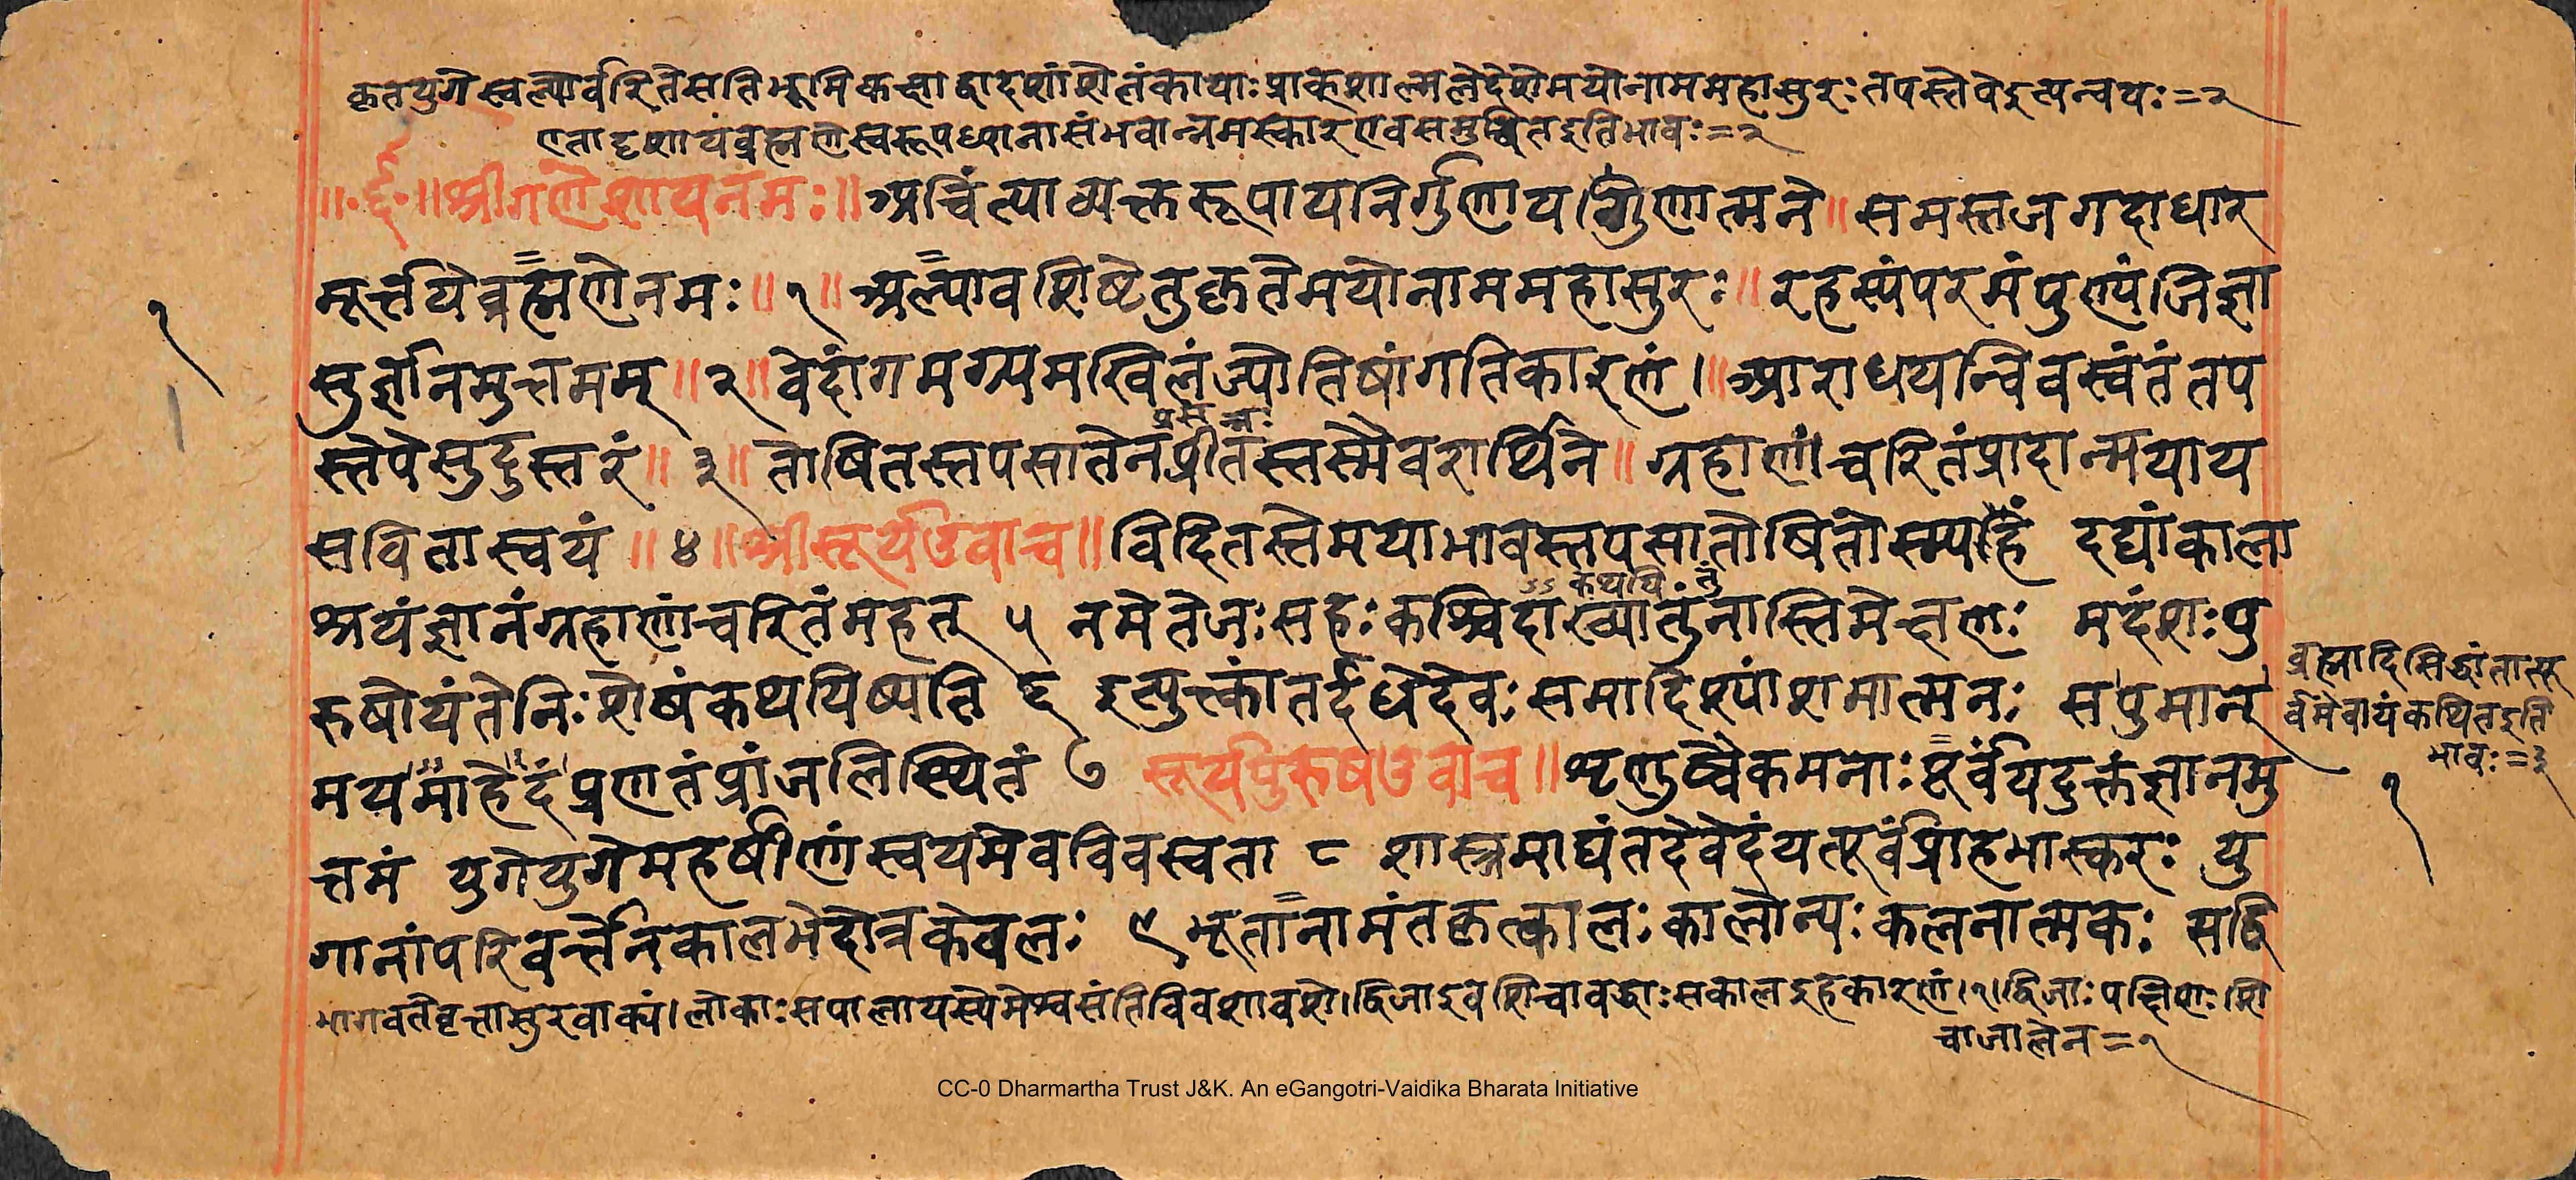 कृतयुगेस्वल्पार्वरितेसतिभूमिकक्षाद्वादशांशेलंकायाःप्राक्शाल्मलेदेशेमयोनाममहासुरःतपस्तेपेइत्यन्वयः=२
एतादृशायंब्रह्मणेस्वरूपध्यानासंभवान्नमस्कारएवसमुचितइतिभावः=२
॥श्रीगणेशायनमः॥अचिंत्याव्यक्तरूपायनिर्गुणायगुणात्मने॥समस्तजगदाधार
मूर्त्तयेब्रह्मणेनमः॥१॥अल्पावशिष्टेतुकृतेमयोनाममहासुरः॥रहस्यंपरमंपुण्यंजिज्ञा
सुर्ज्ञानमुत्तमम्॥२॥वेदांगमग्र्यमखिलंज्योतिषांगतिकारणं।॥आराधयन्विवस्वंतंतप
प्रसन्नः
स्तेपेसुदुस्तरं॥३॥तोषितस्तपसातेनप्रीतस्तस्मैवरार्थिने॥ग्रहाणांचरितंप्रादान्मयाय
सवितास्वयं॥४॥श्रीसूर्यउवाच॥विदितस्तेमयाभावस्तपसातोषितोस्म्यहं दद्यांकाला
ऽऽ कथयितुं
श्रयंज्ञानंग्रहाणांचरितंमहत् ५ नमेतेजःसहःकश्चिदाख्यातुंनास्तिमेक्षणः मदंशःपु
रुषोयंतेनिःशेषंकथयिष्यति ६ इत्युत्क्कांतर्दधेदेवःसमादिश्यांशमात्मनः सपुमान्
ब्रह्मादिसिद्धांतात्पू
र्वमेवायंकथितइति
भावः=३
मयमाहेदंप्रणतंप्रांजलिस्थितं ७ सूर्यपुरुषउवाच॥शृणुष्वैकमनाःपूर्वंयदुक्तंज्ञानमु
त्तमं युगेयुगेमहर्षीणांस्वयमेवविवस्वता ८ शास्त्रमाद्यंतदेवेदंयत्पूर्वंप्राहभास्करः यु
गानांपरिवर्त्तेनकालभेदोत्रकेवलः ९ भूतानामंतकृत्कालःकालोन्यःकलनात्मकः सद्वि
भागवतेवृत्तासुरवाक्यं।लोकाःसपालायस्येमेश्वसंतिविवशावशे।द्विजाइवशिचाबद्धाःसकालइहकारणं।१।द्विजाःपक्षिणःशि
चाजालेन=१
१
१
CC-0 Dharmartha Trust J&K. An eGangotri-Vaidika Bharata Initiative